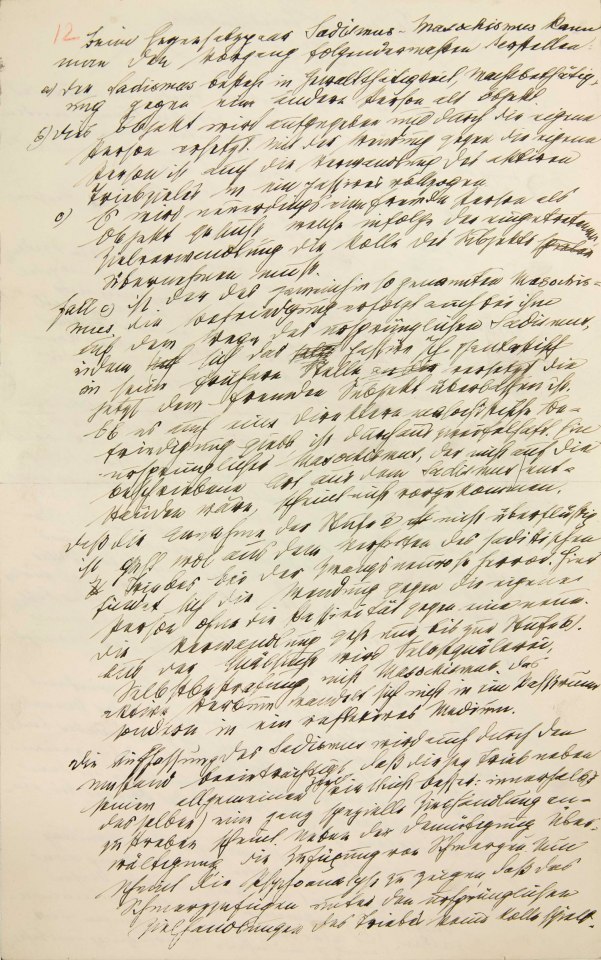 12
Beim Gegensatzpaar Sadismus-Masochismus kann
man den Vorgang folgendermaßen darstellen:
a) der Sadismus besteht in Gewalttätigkeit, Machtbethätig-
ung gegen eine andere Person als Objekt.
b) dies Objekt wird aufgegeben und durch die eigene
Person ersetzt. Mit der Wendung gegen die eigene
Person ist auch die Verwandlung des aktiven
Triebzieles in ein passives vollzogen
c) Es wird neuerdings eine fremde Person als
Objekt gesucht, welche infolge der eingetretenen
Zielverwandlung die Rolle des Subjekts
übernehmen muß.
Fall c) ist der des gemeinhin so genannten Masochis-
mus. die Befriedigung erfolgt auch bei ihm
auf dem Wege des ursprünglichen Sadismus,
indem sich das passive Ich phantastisch
in seine frühere Stelle versetzt die
jetzt dem fremden Subjekt überlassen ist.
Ob es auch eine direktere masochistische Be-
friedigung giebt ist durchaus zweifelhaft. Ein
ursprünglicher Masochismus, der nicht auf die
beschriebene Art aus dem Sadismus ent-
standen wäre, scheint nicht vorzukommen.
daß die Annahme der Stufe b nicht überflüssig
ist geht wol aus dem Verhalten des sadistischen
Triebes bei der Zwangsneurose hervor. Hier
findet sich die Wendung gegen die eigene
Person ohne die Passivität gegen eine neue.
die Verwandlung geht nur bis zur Stufe b).
Aus der Quälsucht wird Selbstquälerei,
Selbstbestrafung nicht Masochismus. das
aktive Verbum wandelt sich nicht in im Passivum
sondern in ein reflexives Medium.
die Auffassung des Sadismus wird auch durch den
Umstand beeinträchtigt, daß dieser Trieb neben
seinem allgemeinen Ziel (vielleicht besser: innerhalb
desselben) eine ganz spezielle Zielhandlung an-
zustreben scheint. Neben der Demütigung, Über-
wältigung, die Zufügung von Schmerzen. Nun
scheint die Psychoanalyse zu zeigen daß das
Schmerzzufügen unter den ursprünglichen
Zielhandlungen des Triebes keine Rolle spielt.